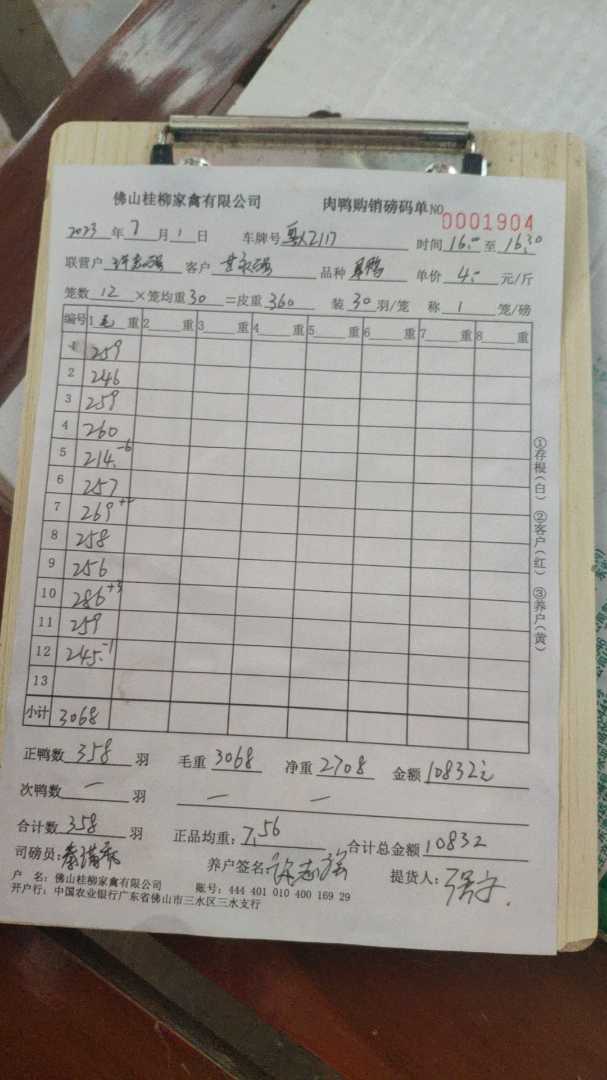 佛山桂柳家禽有限公司 肉鸭购销磅码单 NO 0001904
2023年7月1日 车牌号 2117 时间16:00至16:30
联营户 客户 品种 鸭 单价 4.- 元/斤
笼数 12 ×笼均重30 =皮重360 装30羽/笼 称1笼/磅
编号 1 毛 重 2 重 3 重 4 重 5 重 6 重 7 重 8 重
1 259
2 246
3 259
4 260
5 214.-6
6 257
7 269
8 258
9 256
10 286+3
11 259
12 245.-1
13
小计 3068
①存根(白) ②客户(红) ③养户(黄)
正鸭数 358 羽 毛重 3068 净重 2708 金额 10832元
次鸭数 一 羽 一 一
合计数 358 羽 正品均重: 7.56 合计总金额 10832
司磅员: 养户签名: 许志强 提货人:
户 名: 佛山桂柳家禽有限公司 账号: 444 401 010 400 169 29
开户行: 中国农业银行广东省佛山市三水区三水支行